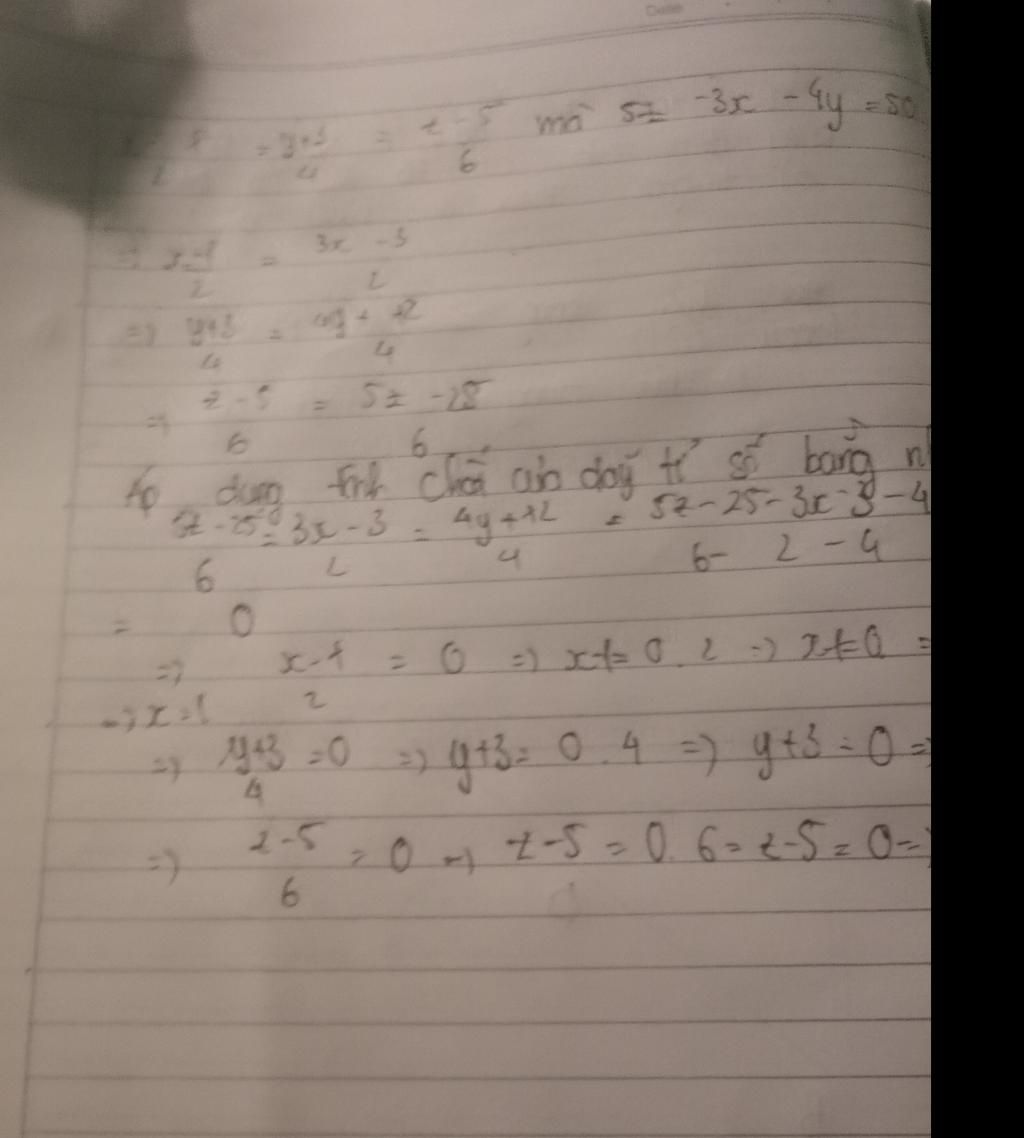 Date
= y+3/4 = z-5/6 mà 5z -3x -4y = 50
=> x-1/2 = 3x-3/2
=> y+3/4 = 4y+12/4
=> z-5/6 = 5z-25/6
Áp dụng tính chất của dãy tỉ số bằng n
5z-25/6 = 3x-3/2 = 4y+12/4 = 5z-25-3x-3-4/6-2-4
= 0
=> x-1/2 = 0 => x-1=0.2 => x-1=0 =
=> x=1
=> y+3/4 =0 => y+3= 0.4 => y+3=0 =>
=> z-5/6 = 0 => z-5=0.6= z-5=0=>